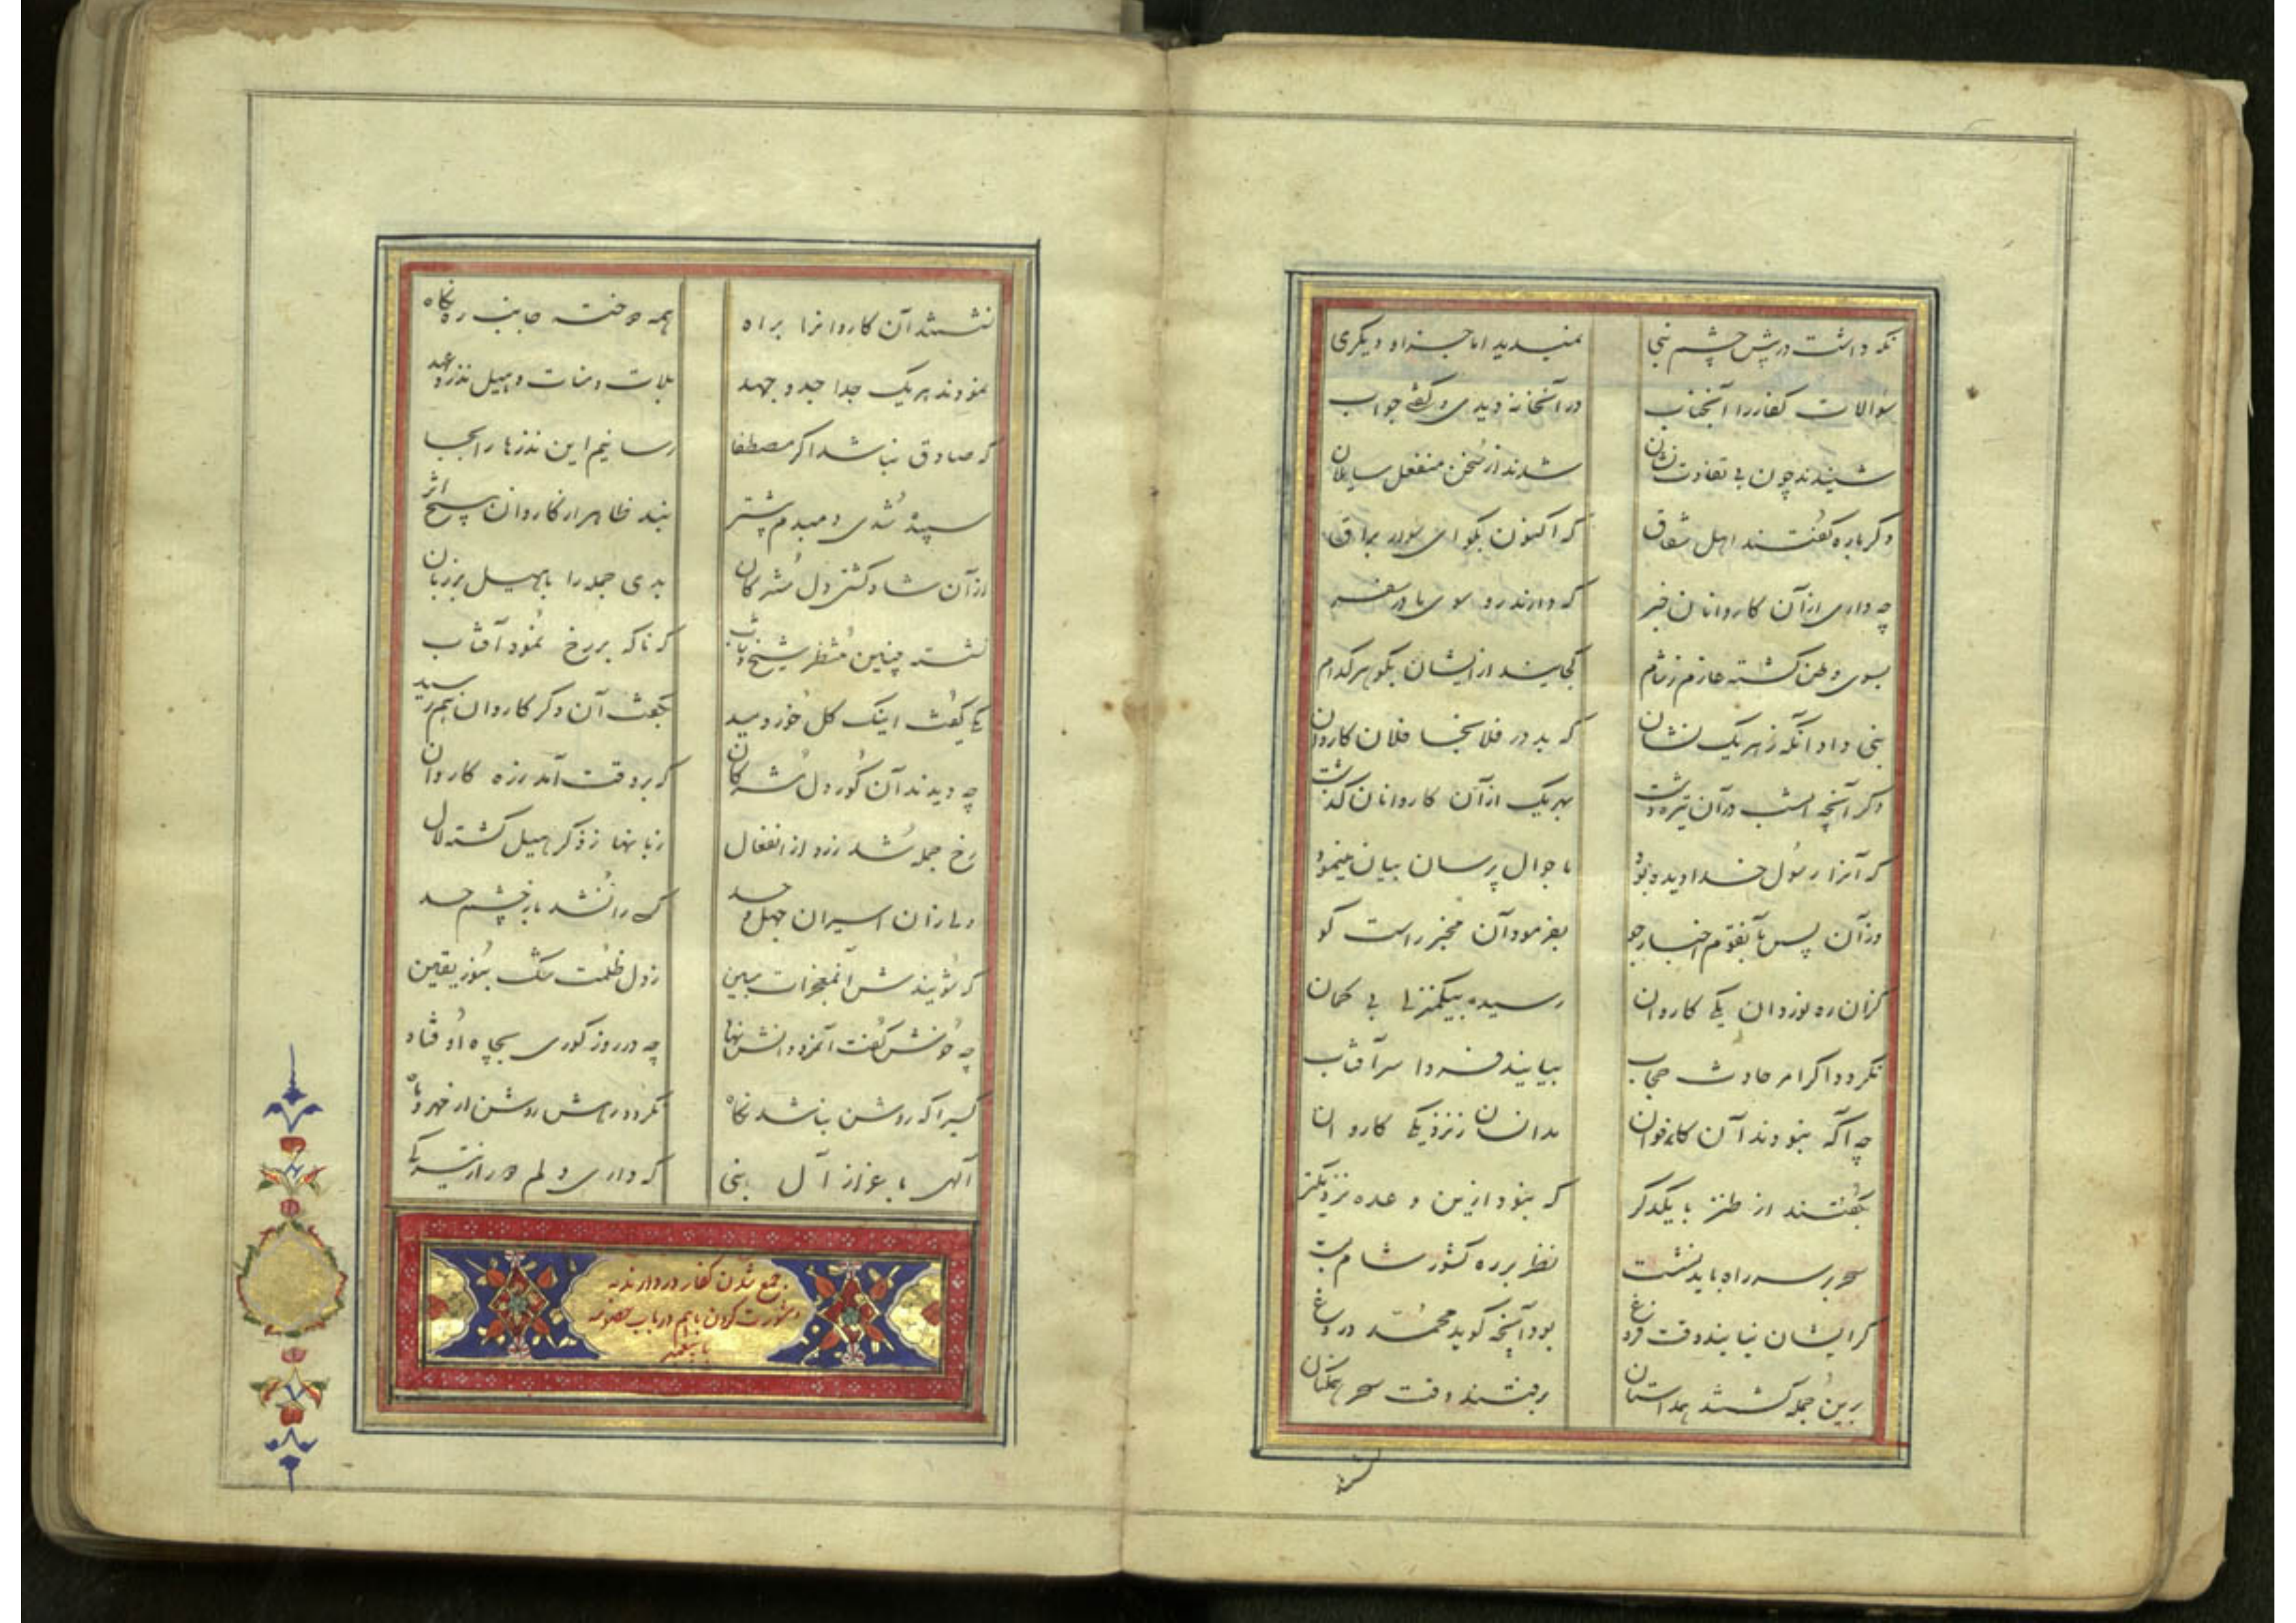 نکه داشت در پیش چشم نبی نمیدید اما جز او دیکری
سوالات کفار را آنجناب در آنخانه دیدی و کفتی جواب
شنیدند چون بی تفاوت نشان شدند از سخن منفعل سایلان
دکر باره کفتند اهل شقاق که اکنون بکو ای سوار براق
چه داری از آن کاروانان خبر که دارند رو سوی ما در سفر
بسوی وطن کشته عازم ز شام کجایند از ایشان بکو هر کدام
نبی داد آنکه ز هر یک نشان که بد در فلانجا فلان کاروان
دکر آنچه امشب در آن تیره دشت بهر یک از آن کاروانان کذشت
که آنرا رسول خدا دیده بود باحوال پرسان بیان مینمود
وز آن پس بآنقوم اخبار جو بفرمود آن مخبر راست کو
کزان ره نوردان یکی کاروان رسیده بیکمنزلی بی کمان
نکردد اکر امر حادث حجاب بیایند فردا سر آفتاب
چه آکه نبودند آن کافران بدانسان ز نزدیکی کاروان
بکفتند از طنز با یکدکر که نبود ازین وعده نزدیکتر
سحر بر سر راه باید نشست نظر بر ره کشور شام بست
کر ایشان نیایند وقت فروغ بود آنچه کوید محمد دروغ
برین جمله کشتند همداستان برفتند وقت سحر همکنان
نشستند آن کاروانرا براه همه دوخته جانب ره نکاه
نمودند هر یک جدا جد و جهد بلات و منات و هبل نذر و عهد
که صادق نباشد اکر مصطفا رسانیم این نذرها را بجا
سپیده شدی دمبدم پیشتر نبد ظاهر از کاروان هیچ اثر
از آن شاد کشتی دل مشرکان بدی جمله را یا هبل بر زبان
نشسته چنین منتظر شیخ و شاب که ناکه برخ نمود آفتاب
یکی کفت اینک کل خور دمید بکفت آن دکر کاروان هم رسید
چه دیدند آن کور دل مشرکان که بر وقت آمد ز ره کاروان
رخ جمله شد زرد از انفعال زبانها ز ذکر هبل کشته لال
ولی زان اسیران جهل و حسد کسی را نشد باز چشم حسد
که شویندش آنمعجزات مبین ز دل ظلمت شک بنور یقین
چه خوش کفت آنمرد دانش نهاد چه در روز کوری بچاه اوفتاد
کسیرا که روشن نباشد نکاه نکردد رهش روشن از مهر و ماه
الهی باعزاز آل نبی که داری دلم دور از تیرکی
جمع شدن کفار در دار ندبه
و مشورت کردن باهم در باب خصومه
با پیغمبر
نشستند